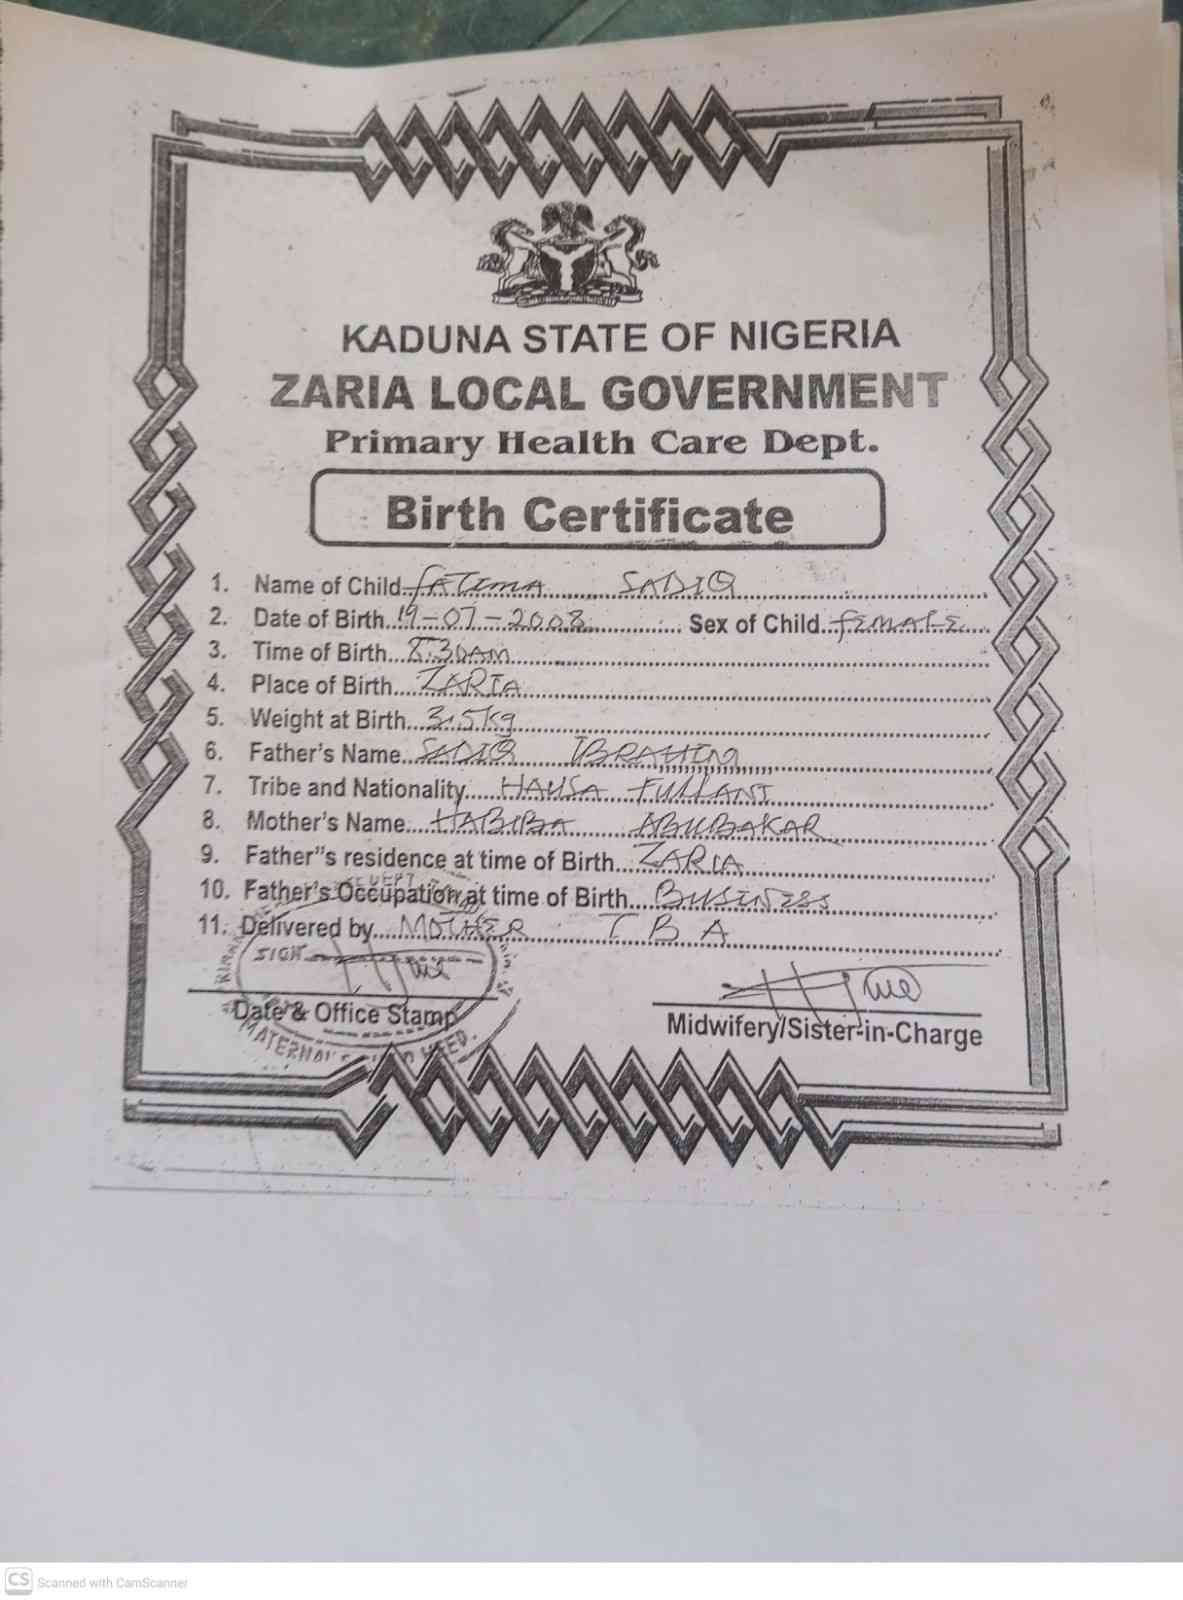 KADUNA STATE OF NIGERIA
ZARIA LOCAL GOVERNMENT
Primary Health Care Dept.
Birth Certificate
1. Name of Child fATIMA SADIQ
2. Date of Birth 19-07-2008 Sex of Child fEMALE
3. Time of Birth 8:30AM
4. Place of Birth ZARIA
5. Weight at Birth 3.5kg
6. Father's Name SADIQ IBRAHIM
7. Tribe and Nationality HAUSA FULLANI
8. Mother's Name HABIBA ABUBAKAR
9. Father"s residence at time of Birth ZARIA
10. Father's Occupation at time of Birth BUSINESS
11. Delivered by MOTHER T B A
SIGN
Date & Office Stamp
Midwifery/Sister-in-Charge
MATERNAL
CS Scanned with CamScanner